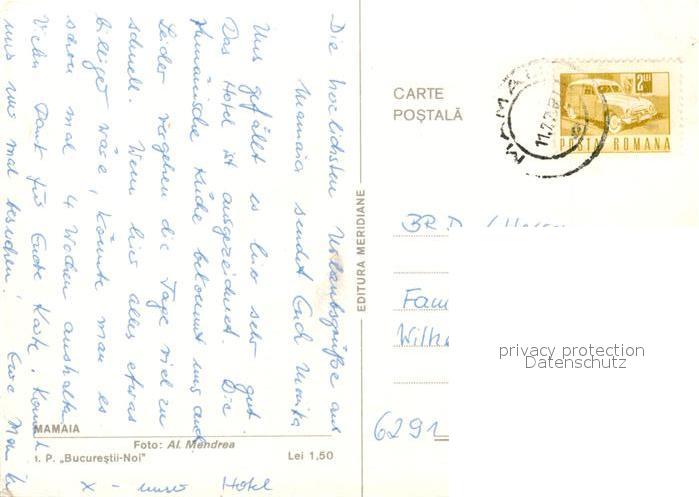 Die herzlichsten Urlaubsgrüße aus
Mamaia sendet Euch Monika
Uns gefällt es hier sehr gut.
Das Hotel ist ausgezeichnet. Die
rumänische Küche bekommt uns auch.
Leider vergehen die Tage viel zu
schnell. Wenn hier alles etwas
billiger wäre, könnte man es
schon mal 4 Wochen aushalten
Vielen Dank für Eure Karte. Kommt
uns mal besuchen! Eure
MAMAIA
Foto: Al. Mendrea
I. P. „Bucureștii-Noi"
Lei 1,50
x - unser Hotel
EDITURA MERIDIANE
CARTE
POȘTALĂ
MAMAIA
2 LEI
POSTA ROMANA
BRD
Fam
Wilhe
6291
privacy protection
Datenschutz